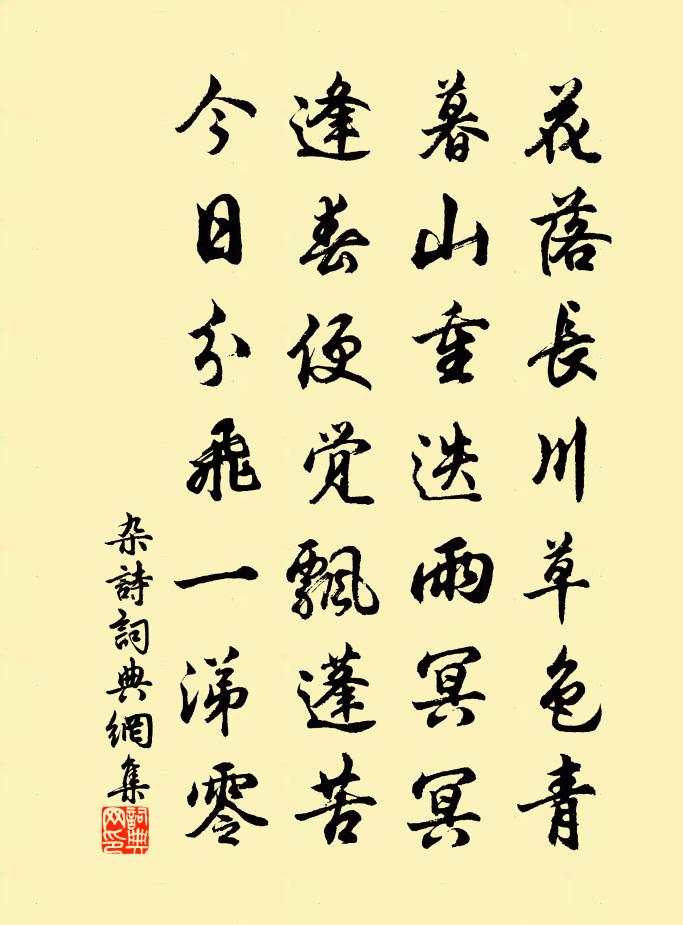 花落長川草色青
暮山重迭雨冥冥
逢春便觉飄蓬苦
今日分飛一涕零
杂詩詞典網集
詞典网印